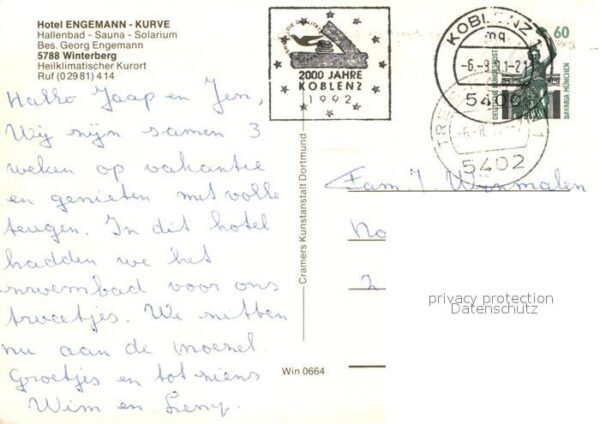 Hotel ENGEMANN - KURVE
Hallenbad - Sauna - Solarium
Bes. Georg Engemann
5788 Winterberg
Heilklimatischer Kurort
Ruf (0 29 81) 4 14
Hallo Jaap en Jen,
Wij zijn samen 3
weken op vakantie
en genieten met volle
teugen. In dit hotel
hadden we het
zwembad voor ons
tweetjes. We zitten
nu aan de moezel
Groetjes en tot ziens
Wim en
2000 JAHRE
KOBLENZ
1992
KOBLENZ 1
mq
5400
5402
60
DEUTSCHE BUNDESPOST
BAVARIA MÜNCHEN
Fam. J
No
2
Cramers Kunstanstalt Dortmund
Win 0664
privacy protection
Datenschutz